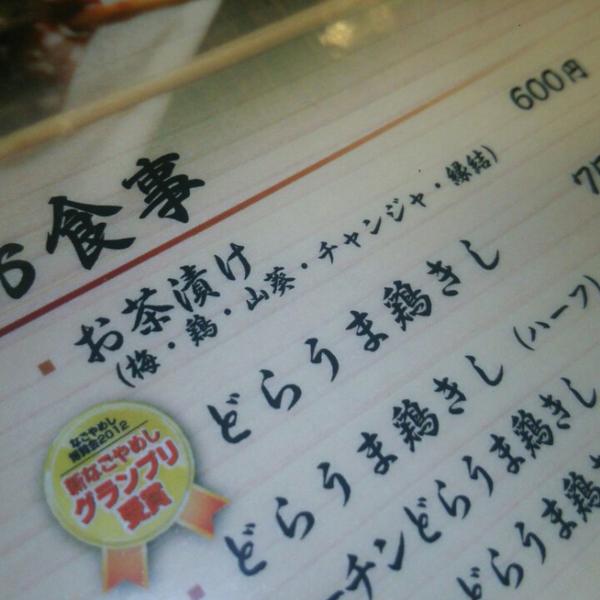 お食事
お茶漬け 600円
(梅・鶏・山葵・チャンジャ・縁結)
どらうま鶏きし
どらうま鶏きし (ハーフ)
ーチンどらうま鶏きし
どらうま鶏
なごやめし
博覧会2012
新なごやめし
グランプリ
受賞